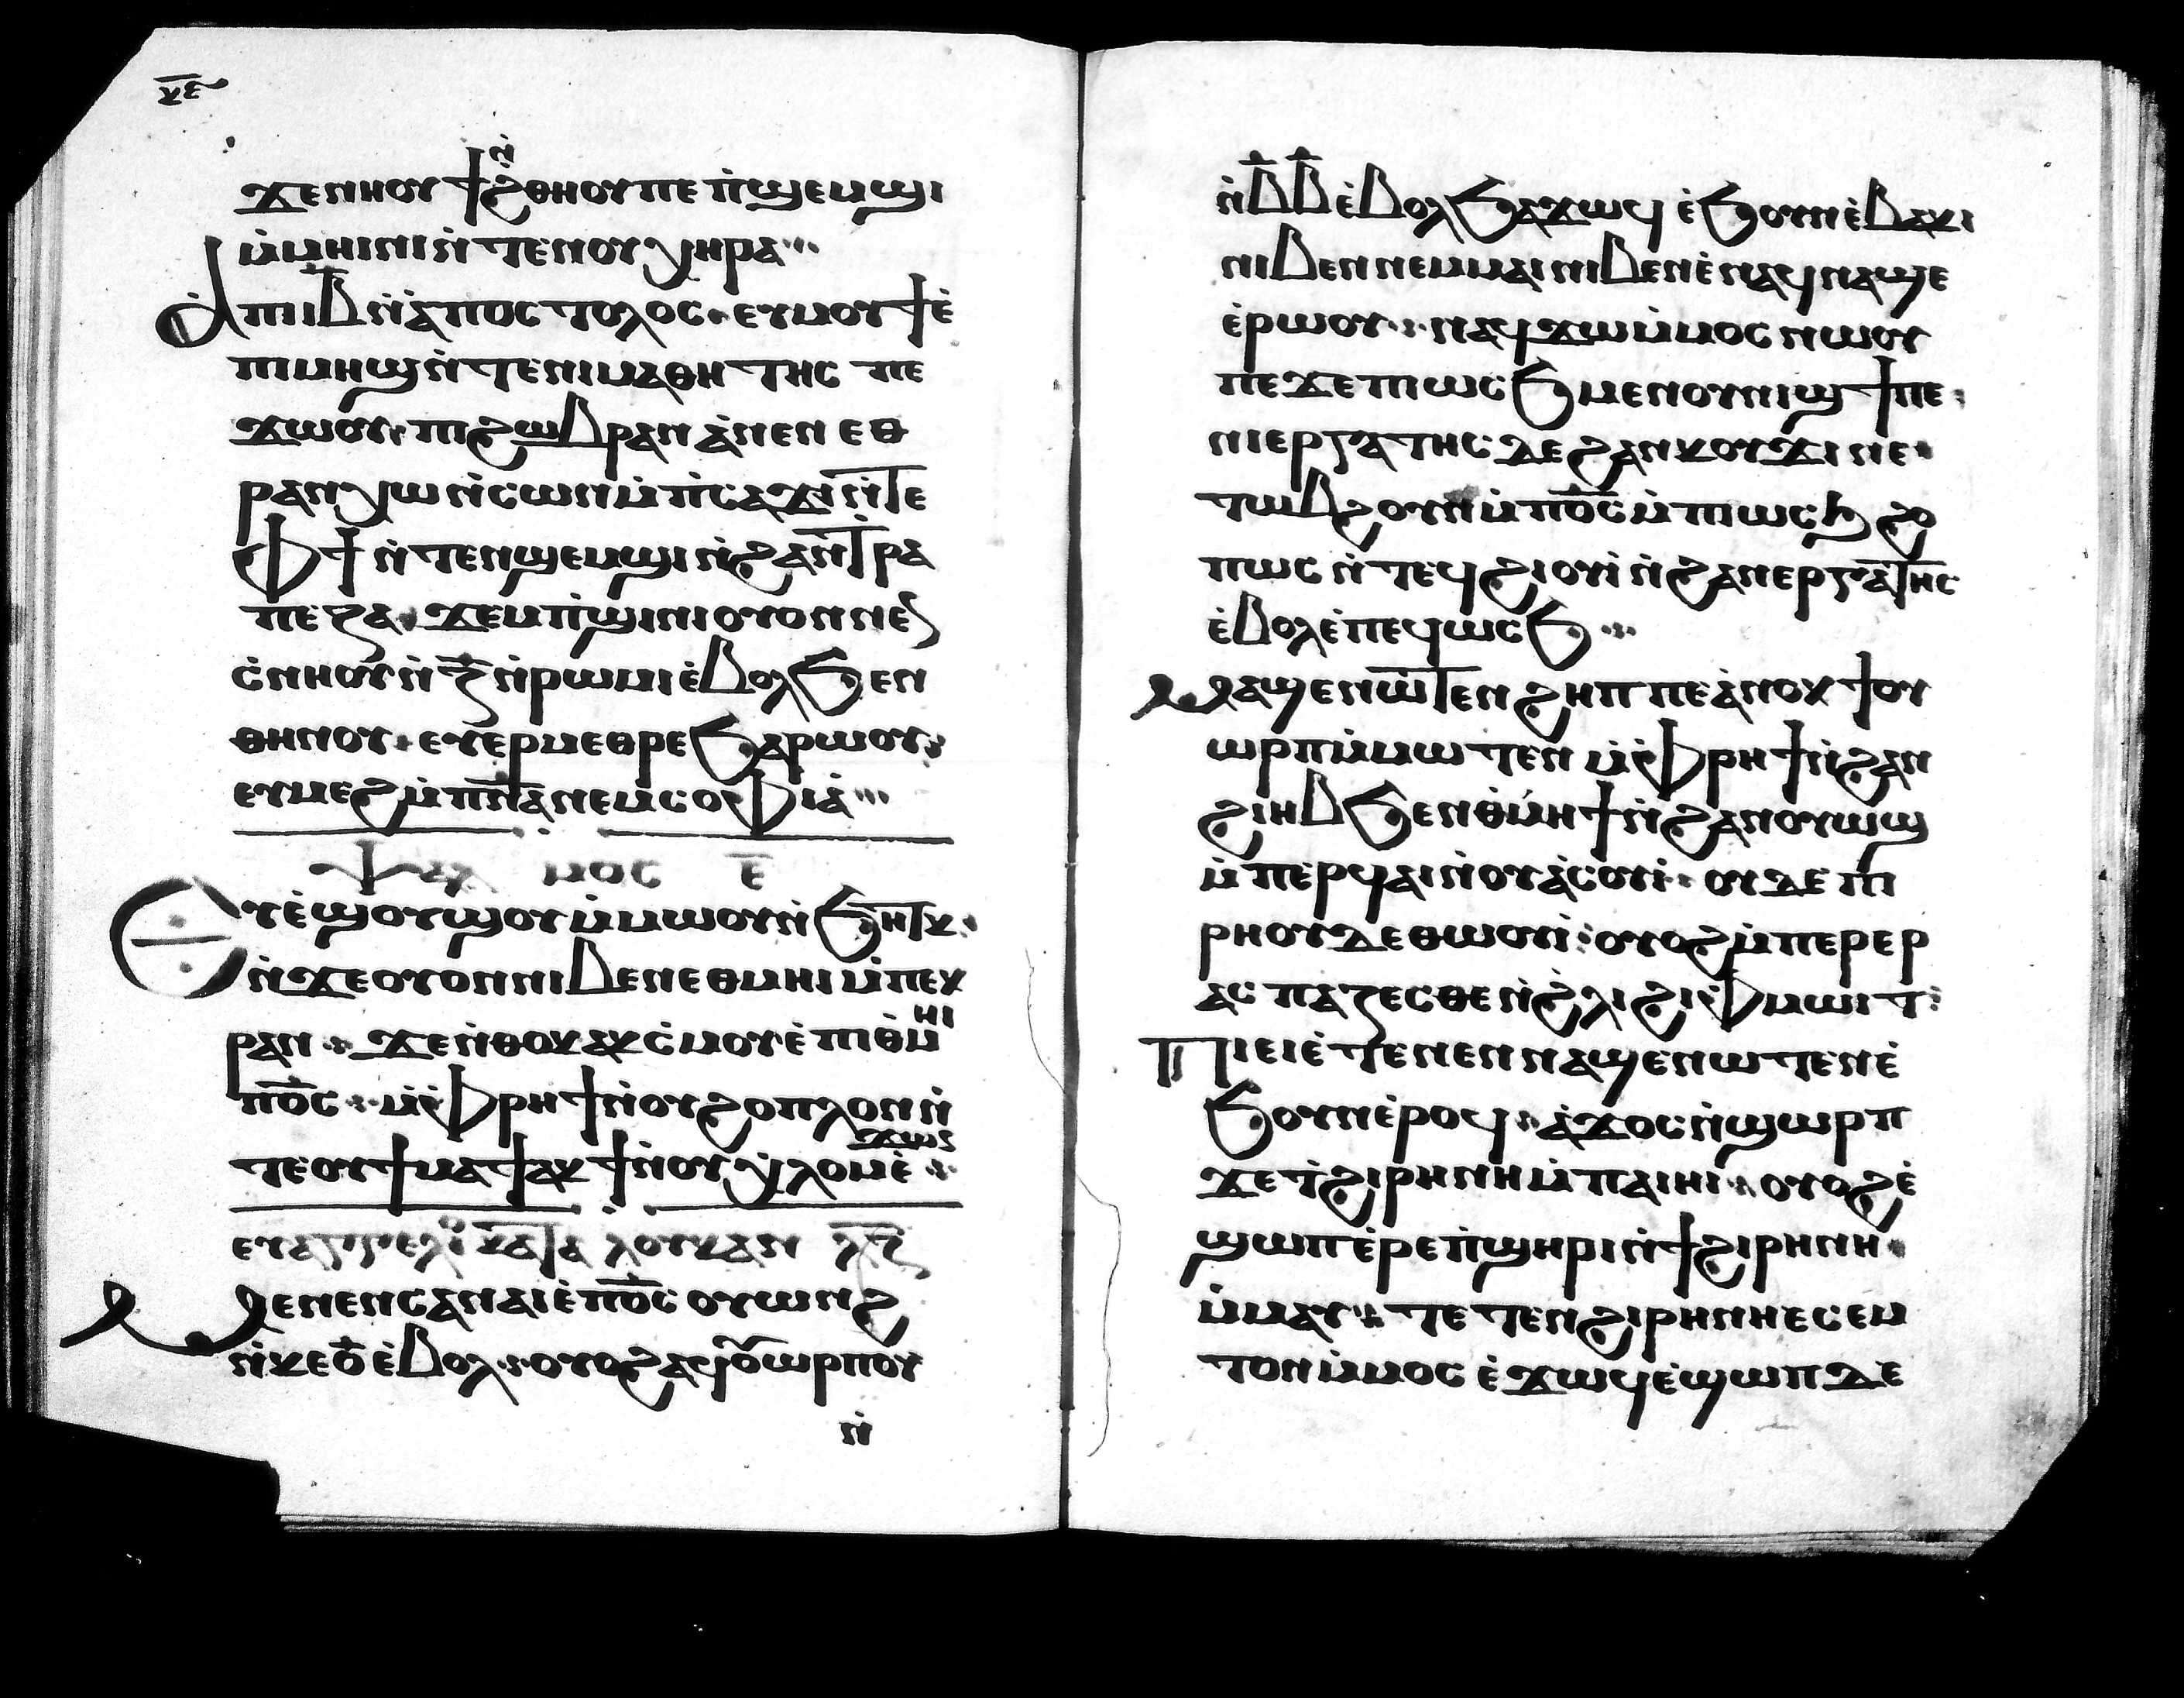 ⲕⲉ
ϫⲉⲛⲏⲟⲩ ϯϩ̀ⲑⲏⲟⲩ ⲡⲉ ⲡ̀ϣⲉⲙϣⲓ
ⲙ̀ⲙⲏⲓⲛⲓ ⲛ̀ⲧⲉⲛⲟⲩⲭⲏⲣⲁ
Ⲁ̀ⲡⲓⲓ̅ⲃ̅ ⲛ̀ⲁ̀ⲡⲟⲥⲧⲟⲗⲟⲥ ⲉⲩⲙⲟⲩϯ ⲉ̀
ⲡⲓⲙⲏϣ ⲛ̀ⲧⲉⲛⲓⲙⲁⲑⲏⲧⲏⲥ ⲡⲉ
ϫⲱⲟⲩ ⲡⲓϩⲱⲃ ⲣⲁⲛ ⲁ̀ⲛⲉⲛ ⲉⲑ
ⲣⲁⲛⲭⲱ ⲛ̀ⲥⲱⲛ ⲙ̀ⲡ̀ⲥⲁϫⲓ ⲛ̀ⲧⲉ
ⲫϯ ⲛ̀ⲧⲉⲛϣⲉⲙϣⲓ ⲛ̀ϩⲁⲛⲧⲣⲁ
ⲡⲉⲍⲁ ϫⲉⲙⲡ̀ϣⲓⲛⲓ ⲟⲩⲟⲛ ⲛⲉ
ⲥ̀ⲛⲏⲟⲩ ⲛ̀ⲍ̅ ⲛ̀ⲣⲱⲙⲓ ⲉ̀ⲃⲟⲗϧⲉⲛ
ⲑⲏⲛⲟⲩ ⲉⲩⲉⲣⲙⲉⲑⲣⲉ ϧⲁⲣⲱⲟⲩ
ⲉⲩⲙⲉϩ ⲙ̀ⲡ̅ⲛ̅ⲁ̅ ⲛⲉⲙ ⲥⲟⲫⲓⲁ̀
ⲯⲁⲗⲙⲟⲥ ⲉ̅
Ⲉⲩⲉ̀ϣⲟⲩϣⲟⲩ ⲙ̀ⲙⲱⲟⲩ ⲛ̀ϧⲏⲧⲕ
ⲛ̀ϫⲉⲟⲩⲟⲛ ⲛⲓⲃⲉⲛ ⲉⲑⲙⲏⲓ ⲙ̀ⲡⲉⲕ
ⲣⲁⲛ ϫⲉ ⲛ̀ⲑⲟⲕ ⲁⲕⲥ̀ⲙⲟⲩ ⲉ̀ⲡⲓⲑ̀ⲙⲏⲓ
ⲡ⳪ ⲙ̀ⲫ̀ⲣⲏϯ ⲛ̀ⲟⲩϩⲟⲡⲗⲟⲛ ⲛ̀
ⲧⲉⲟⲩϯⲙⲁϯ ⲁⲕϯ ⲛ̀ⲟⲩⲭ̀ⲗⲟⲙ ⲉ̀ϫⲱⲥ
ⲉⲩⲁⲅⲅⲉⲗⲓⲟ ⲕⲁⲧⲁ ⲗⲟⲩⲕⲁⲛ ⲗ̅ⲍ̅
Ⲙⲉⲛⲉⲛⲥⲁⲛⲁⲓ ⲉ̀ⲡ⳪ ⲟⲩⲱⲛϩ
ⲛ̀ⲕⲉⲟ̅ ⲉ̀ⲃⲟⲗ ⲟⲩⲟϩ ⲁϥⲟⲩⲱⲣⲡⲟⲩ
ⲛ̀
ⲛ̀ⲃ̅ⲃ̅ ⲉ̀ⲃⲟⲗϧⲁϫⲱϥ ⲉ̀ϧⲟⲩⲛ ⲉ̀ⲃⲁⲕⲓ
ⲛⲓⲃⲉⲛ ⲛⲉⲙ ⲙⲁⲓ ⲛⲓⲃⲉⲛ ⲉ̀ⲛⲁϥⲛⲁϣⲉ
ⲉ̀ⲣⲱⲟⲩ ⲛⲁϥϫⲱ ⲙ̀ⲙⲟⲥ ⲛⲱⲟⲩ
ⲡⲉ ϫⲉ ⲡⲓⲱⲥϧ ⲙⲉⲛ ⲟⲩⲛⲓϣϯ ⲡⲉ
ⲛⲓⲉⲣⲅⲁⲧⲏⲥ ⲇⲉ ϩⲁⲛⲕⲟⲩϫⲓ ⲛⲉ
ⲧⲱⲃϩ ⲟⲩⲛ ⲙ̀ⲡ⳪ ⲙ̀ⲡⲓⲱⲥϧ ϩⲟ
ⲡⲱⲥ ⲛ̀ⲧⲉϥϩⲓⲟⲩⲓ̀ ⲛ̀ϩⲁⲛⲉⲣⲅⲁⲧⲏⲥ
ⲉ̀ⲃⲟⲗ ⲉ̀ⲡⲉϥⲱⲥϧ
Ⲙⲁϣⲉⲛⲱⲧⲉⲛ ϩⲏⲡⲡⲉ ⲁ̀ⲛⲟⲕ ϯⲟⲩ
ⲱⲣⲡ ⲙ̀ⲙⲱⲧⲉⲛ ⲙ̀ⲫ̀ⲣⲏϯ ⲛ̀ϩⲁⲛ
ϩⲓⲏⲃ ϧⲉⲛ ⲑ̀ⲙⲏϯ ⲛ̀ϩⲁⲛⲟⲩⲱⲛϣ
ⲙ̀ⲡⲉⲣϥⲁⲓ ⲛ̀ⲟⲩⲁ̀ⲥⲟⲩⲓ̀ ⲟⲩⲇⲉ ⲡⲓ
ⲣⲏ ⲟⲩⲇⲉ ⲑⲱⲟⲩⲓ̀ ⲟⲩⲟϩ ⲙ̀ⲡⲉⲣⲉⲣ
ⲁⲥⲡⲁⲍⲉⲥⲑⲉ ⲛ̀ϩ̀ⲗⲓ ϩⲓ ⲫ̀ⲙⲱⲓⲧ
Ⲡⲓⲉⲓ ⲉ̀ⲧⲉⲛⲉⲛⲛⲁϣⲉⲛⲱⲧⲉⲛ ⲉ̀
ϧⲟⲩⲛ ⲉ̀ⲣⲟϥ ⲁ̀ϫⲟⲥ ⲛ̀ϣⲱⲣⲡ
ϫⲉ ⲧ̀ϩⲓⲣⲏⲛⲏ ⲙ̀ⲡⲁⲓⲏⲓ ⲟⲩⲟϩ ⲉ̀
ϣⲱⲡ ⲉ̀ⲣⲉⲡ̀ϣⲏⲣⲓ ⲛ̀ϯϩⲓⲣⲏⲛⲏ
ⲙ̀ⲙⲁⲩ ⲧⲉⲧⲉⲛϩⲓⲣⲏⲛⲏ ⲉⲥⲉⲙ
ⲧⲟⲛ ⲙ̀ⲙⲟⲥ ⲉ̀ϫⲱϥ ⲉ̀ϣⲱⲡ ⲇⲉ